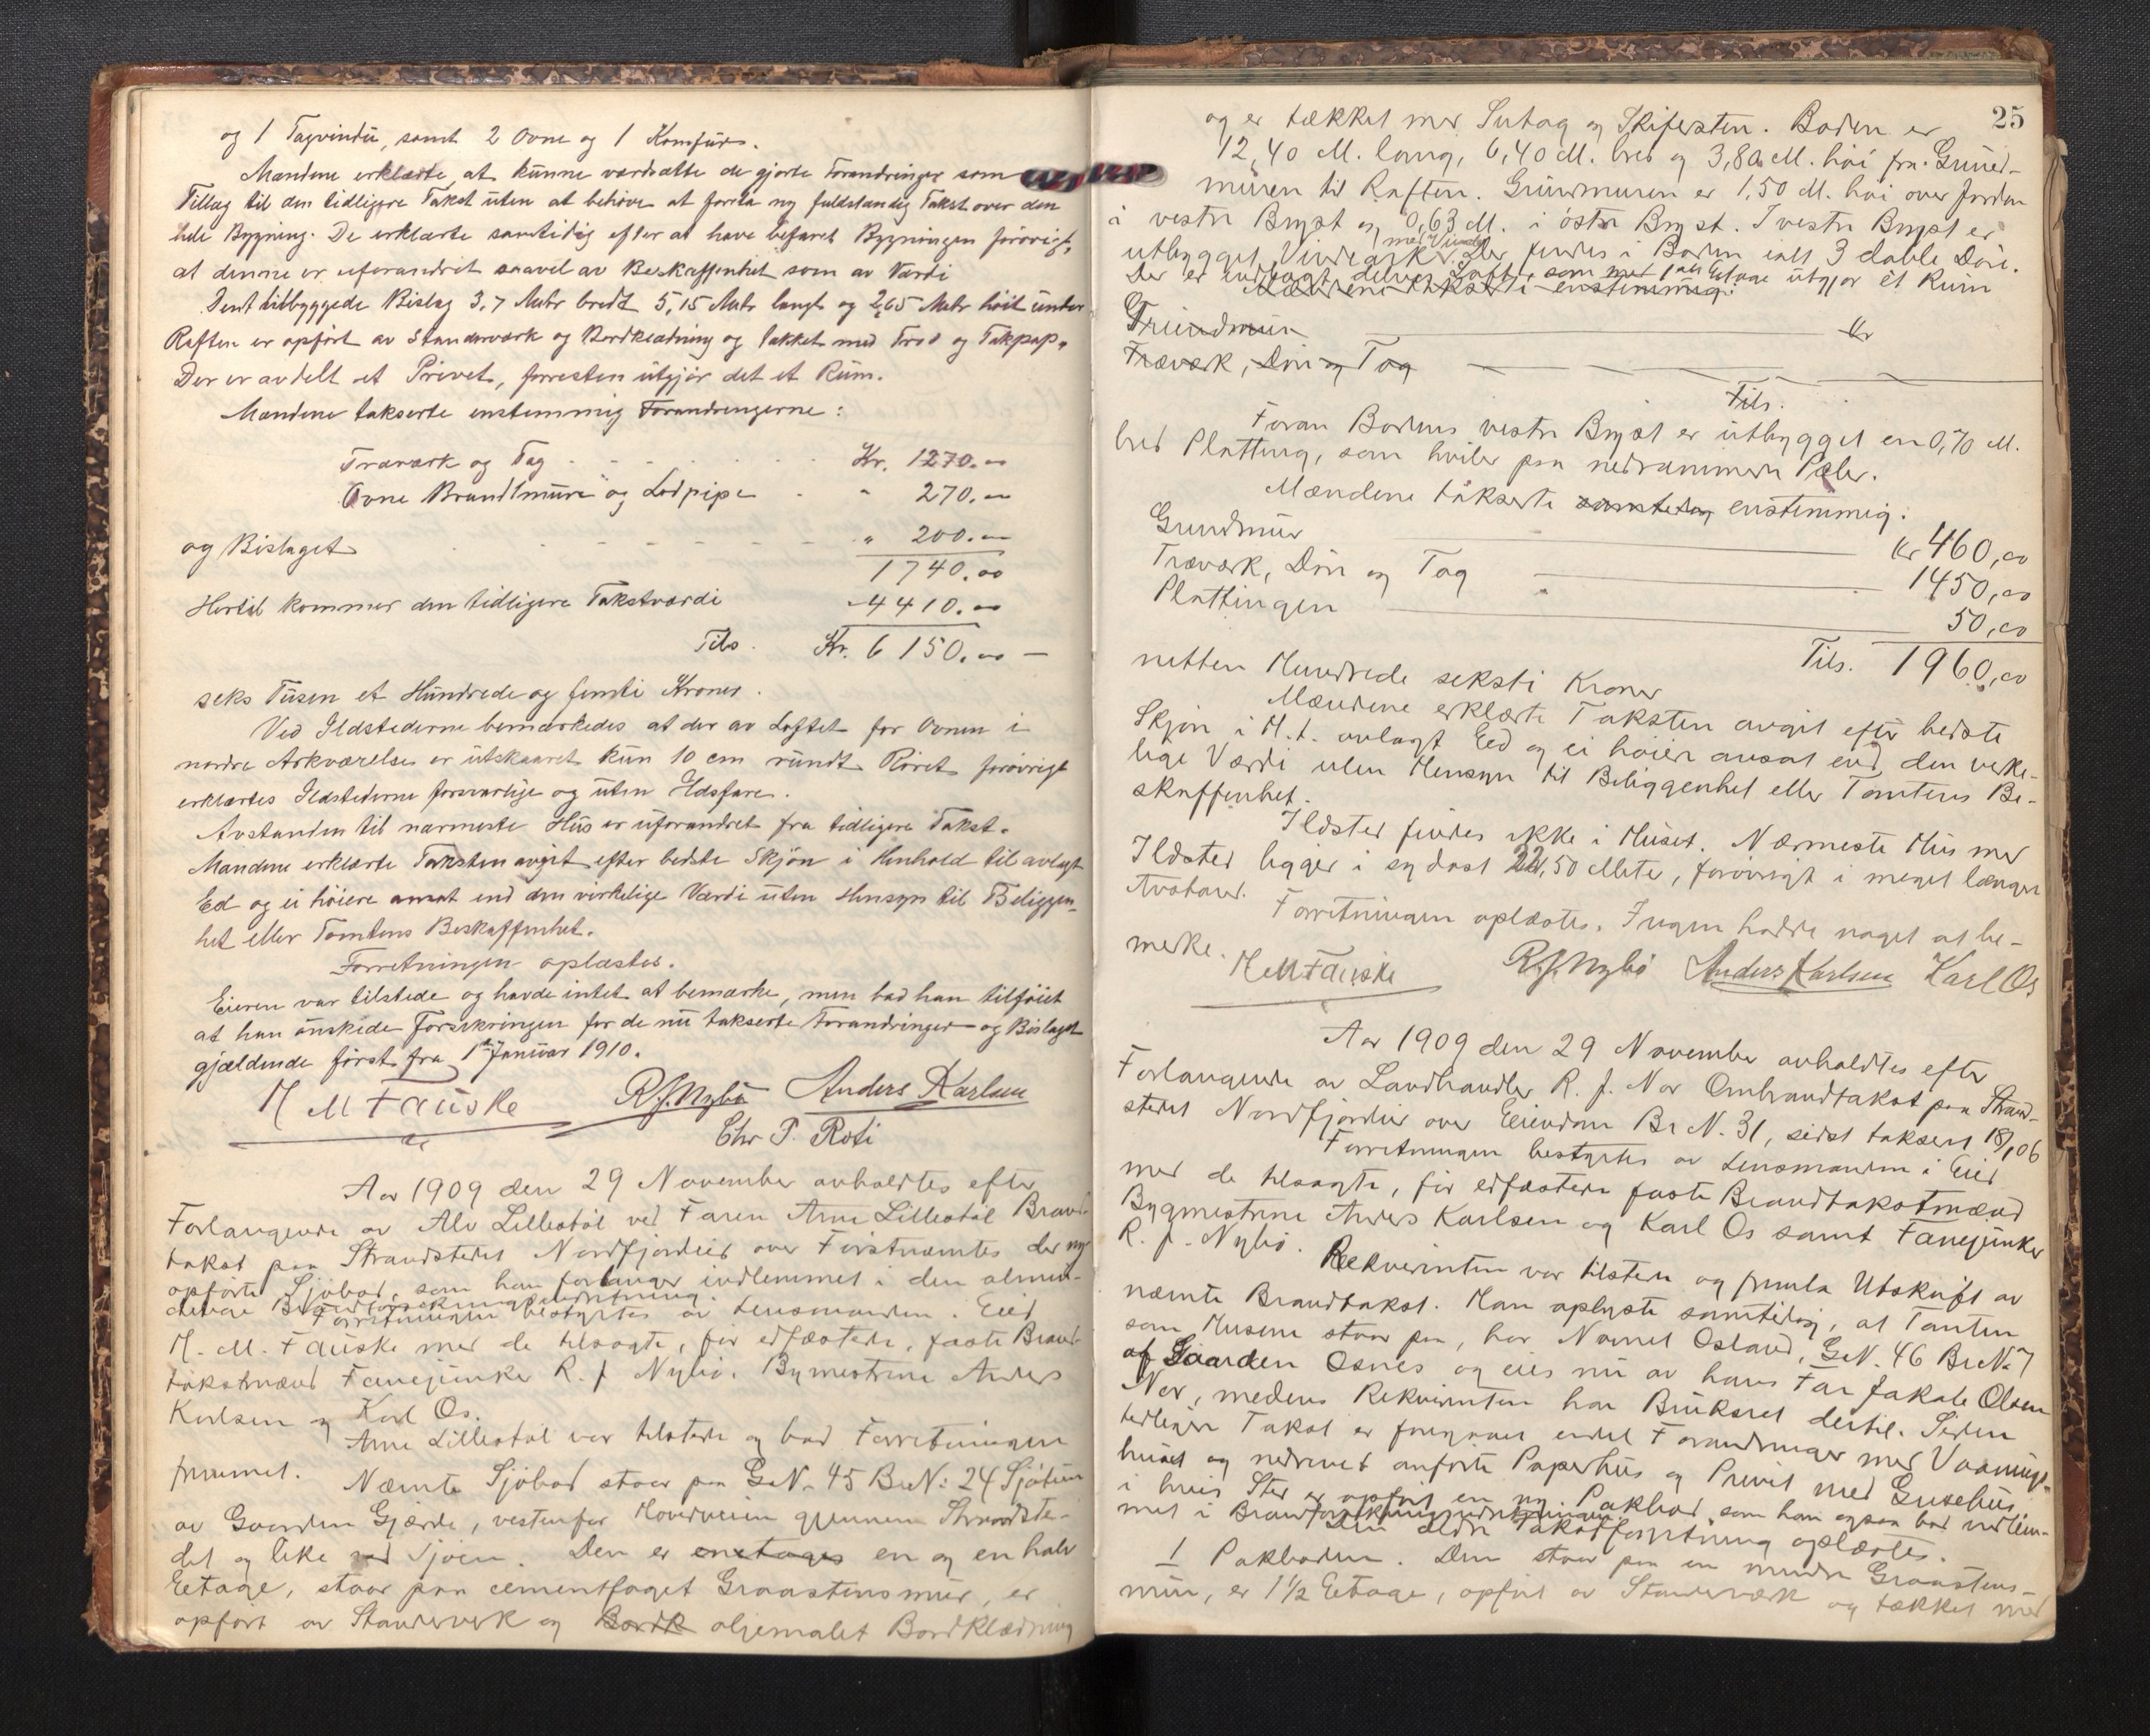 og 1 Tagvindu, samt 2 Ovne og 1 Komfur.
Mændene erklærte, at kunne værdsætte de gjorte Forandringer som
Tillæg til den tidligere Takst uten at behøve at foreta ny fuldstændig Takst over den
hele Bygning. De erklærte samtidig efter at have befaret Bygningen forøvrigt,
at denne er uforandret saavel av Beskaffenhet som av Værdi
Dent utbyggede Bislag 3,7 Meter bredt 5,15 Meter langt og 2,65 Meter høit under
Raften er opført av Standerværk og Bordklædning og tækket med Tro og Takpap.
Der er avdelt et Privet, forresten utgjør det et Rum.
Mændene takserte enstemmig Forandringerne:
Træværk og Tag Kr. 1270.00
Ovne Brandtmure og Lodpipe " 270.00
og Bislaget " 200.00
1740.00
Hertil kommer den tidligere Takstværdi 4410.00
Tils. Kr. 6150.00 —
seks Tusen et Hundrede og femti Kroner.
Ved Ildstederne bemærkedes at der av Loftet for Ovnen i
nordre Arkværelse er utskaaret kun 10 cm rundt Røret forøvrigt
erklærtes Ildstederne forsvarlige og uten Ildsfare.
Avstanden til nærmeste Hus er uforandret fra tidligere Takst.
Mændene erklærte Taksten avgit efter bedste Skjøn i Henhold til avlagt
Ed og ei høiere ansat end den virkelige Værdi uten Hensyn til Beliggen-
het eller Tomtens Beskaffenhet.
Forretningen oplæstes.
Eieren var tilstede og havde intet at bemærke, men bad han tilføiet
at han ønskede Forsikringen for de nu takserte Forandringer og Bislaget
gjældende først fra 1ste Januar 1910.
H M Fauske R. J. Nybø Anders Karlsen
Chr P. Roti
Aar 1909 den 29 November avholdtes efter
Forlangende av Alv Lillestøl ved Faren Arne Lillestøl Brand-
takst paa Strandstedet Nordfjordeid over Førstnæmtes der ny
opførte Sjøbod, som han forlanger indlemmet i den almin-
delige Brandforsikringsindretning.
Forretningen bestyrtes av Lensmanden i Eid
H. M. Fauske med de tilsagte, før edfæstede, faste Brand-
takstmænd Fanejunker R. J. Nybø, Bymestrene Anders
Karlsen og Karl Os.
Arne Lillestøl var tilstede og bad Forretningen
fremmet.
Næmte Sjøbod staar paa G.N. 45 Br.N: 24 Sjøtun
av Gaarden Gjærde, vestenfor Hovedveien gjennem Strandste-
det og like ved Sjøen. Den er enetages en og en halv
Eetage, staar paa cementfuget Graastensmur, er
opført av Standerverk og Bordk oljemalet Bordklædning
25
og er tækket med Sutag og Skifersten. Boden er
12,40 M. lang, 6,40 M. bred og 3,80 M. høi fra Grund-
muren til Raften. Grundmuren er 1,50 M. høi over Jorden
i vestre Bryst og 0,63 M. i østre Bryst. I vestre Bryst er
utbygget Vindeark med Vindu. Der findes i Boden ialt 3 doble Døre.
Der er indlagt delvis Loft, som med 1ste Etage utgjør ét Rum
Mændene takserte enstemmig:
Grundmur Kr
Træværk, Døre og Tag
Tils.
Foran Bodens vestre Bryst er utbygget en 0,70 M.
bred Platting, som hviler paa nedrammede Pæler.
Mændene takserte samtidig enstemmig:
Grundmur Kr 460,00
Træværk, Døre og Tag " 1450,00
Plattingen 50,00
Tils. 1960,00
nitten Hundrede seksti Kroner
Mændene erklærte Taksten avgit efter bedste
Skjøn i H. t. avlagt Eed og ei høiere ansat end den virke-
lige Værdi uten Hensyn til Beliggenhet eller Tomtens Be-
skaffenhet.
Ildsted findes ikke i Huset. Nærmeste Hus med
Ildsted ligger i sydost 22,50 Meter, forøvrigt i meget længre
Avstand.
Forretningen oplæstes. Ingen hadde noget at be-
merke.
H M Fauske R. J. Nybø Anders Karlsen Karl Os
Aar 1909 den 29 November avholdtes efter
Forlangende av Landhandler R. J. Nor Ombrandtakst paa Strand-
stedet Nordfjordeid over Eiendom Br N. 31, sidst taksert 18/ 06
Forretningen bestyrtes av Lensmanden i Eid
med de tilsagte, før edfæstede faste Brandtakstmænd
Bygmestrene Anders Karlsen og Karl Os samt Fanejunker
R. J. Nybø.
Rekvirenten var tilstede og fremla Utskrift av
næmte Brandtakst. Han oplyste samtidig, at Tomten
som Husene staar paa, har Navnet Osland, G.N. 46 Br.N. 7
af Gaarden Osnes og eies nu av hans Far Jakob Olsen
Nor, medens Rekvirenten har Bruksret dertil. Siden
tidligere Takst er foregaaet endel Forandringer med Vaanings-
huset og nedrevet anførte Paperhus og Privet med Grisehus
i hvis Sted er opført en ny Pakbod, som han ogsaa bad indlem-
met i Brandforsikringsindretningen.
Den ældre Takstforretning oplæstes.
1 Pakboden. Den staar paa en muret Graastens-
mur, er 1 1/2 Eetage, opført av Standerværk og tækket med